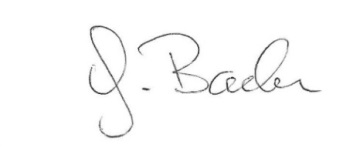 J. Bader